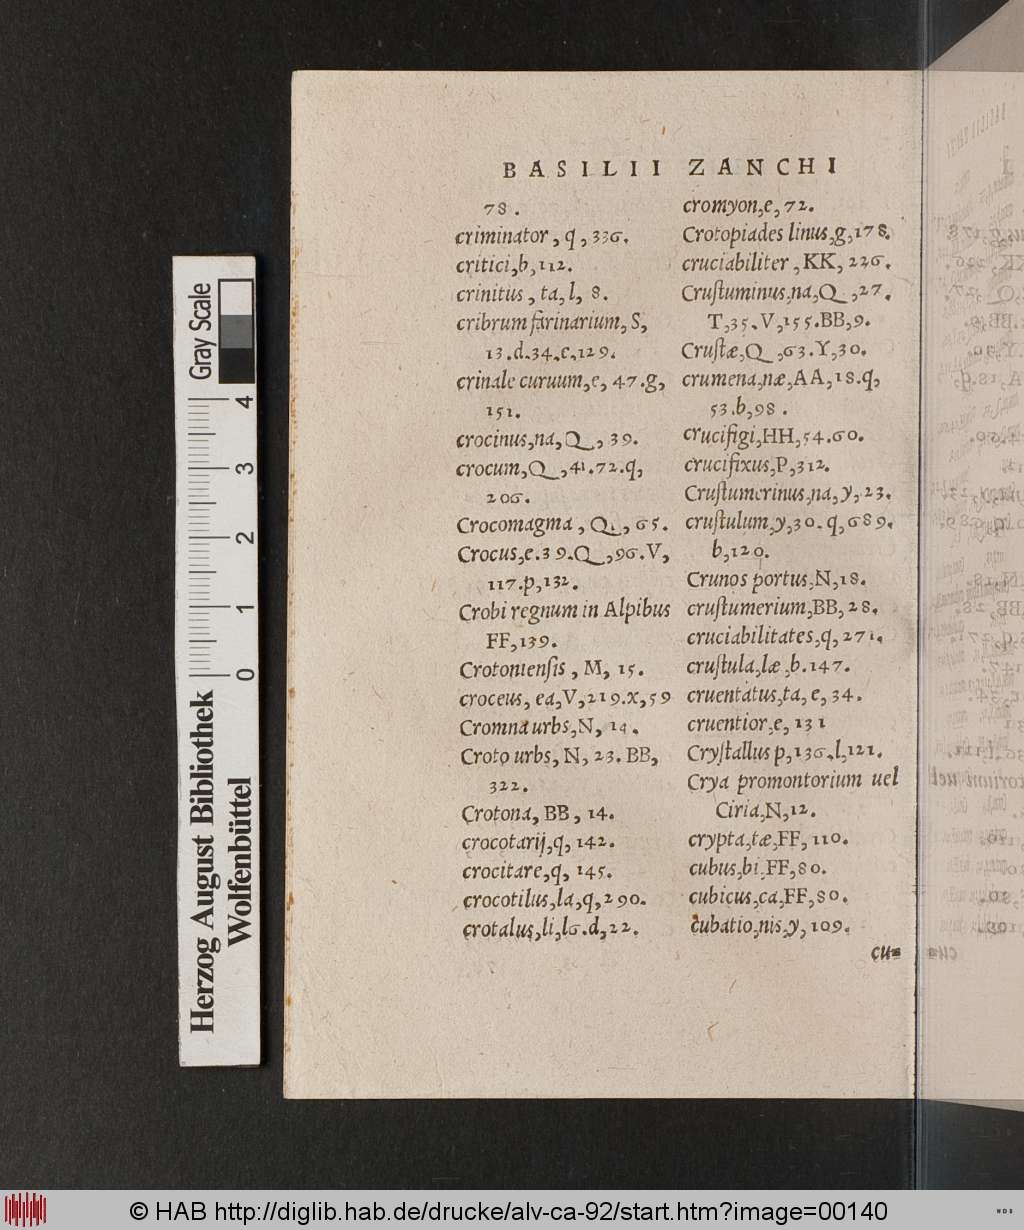 BASILII ZANCHI
78.
criminator, q, 336.
critici, b, 112.
crinitus, ta, l, 8.
cribrum farinarium, S,
13. d. 34. c, 129.
crinale curuum, e, 47. g,
151.
crocinus, na, Q, 39.
crocum, Q, 41. 72. q,
206.
Crocomagma, Q, 65.
Crocus, e. 39. Q, 96. V,
117. p, 132.
Crobi regnum in Alpibus
FF, 139.
Crotonienſis, M, 15.
croceus, ea, V, 219. x, 59
Cromna urbs, N, 14.
Croto urbs, N, 23. BB,
322.
Crotona, BB, 14.
crocotarij, q, 142.
crocitare, q, 145.
crocotilus, la, q, 290.
crotalus, li, l6. d, 22.
cromyon, e, 72.
Crotopiades linus, g, 178.
cruciabiliter, KK, 226.
Cruſtuminus, na, Q, 27.
T, 35. V, 155. BB, 9.
Cruſtæ, Q, 63. Y, 30.
crumena, næ, AA, 18. q,
53. b, 98.
crucifigi, HH, 54. 60.
crucifixus, P, 312.
Cruſtumerinus, na, y, 23.
cruſtulum, y, 30. q, 689.
b, 120.
Crunos portus, N, 18.
cruſtumerium, BB, 28.
cruciabilitates, q, 271.
cruſtula, læ, b. 147.
cruentatus, ta, e, 34.
cruentior, e, 131
Cryſtallus p, 136. l, 121.
Crya promontorium uel
Ciria, N, 12.
crypta, tæ, FF, 110.
cubus, bi, FF, 80.
cubicus, ca, FF, 80.
cubatio, nis, y, 109.
cu=
Gray Scale
4
3
2
1
0
Herzog August Bibliothek
Wolfenbüttel
© HAB http://diglib.hab.de/drucke/alv-ca-92/start.htm?image=00140
WDB